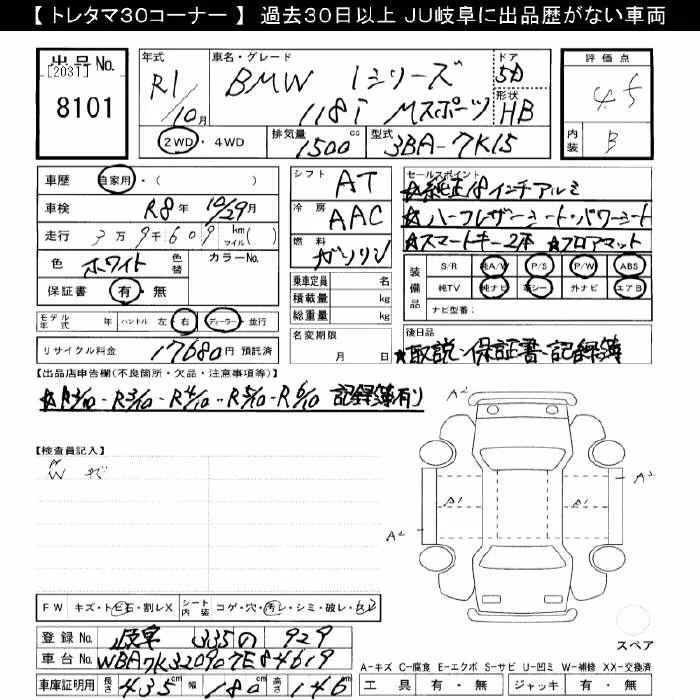 【 トレタマ30コーナー 】 過去30日以上 JU岐阜に出品歴がない車両
出品 No.
[2031]
8101
年式
R1/10月
車名・グレード
BMW 1シリーズ
118i Mスポーツ
ドア
5D
形状
HB
2WD・4WD
排気量
1500 cc
型式
3BA-7K15
評価点
4.5
内装
B
車歴 自家用・( )
車検 R8年10/29月
走行 3万9千609 km マイル( )
色 ホワイト 色替 カラーNo.
保証書 有・無
モデル年式 年 ハンドル 左・右 ディーラー・並行
リサイクル料金 17680円 預託済
シフト AT
冷房 AAC
燃料 ガソリン
乗車定員 名
積載量 kg
総重量 kg
名変期限
月 日
セールスポイント
☆純正18インチアルミ
☆ハーフレザーシート・パワーシート
☆スマートキー2本 ☆フロアマット
装備品
S/R 純A/W P/S P/W ABS
純TV 純ナビ 革シー 外ナビ エアB
ナビ型番:
後日品
☆取説・保証書・記録簿
【出品店申告欄(不良箇所・欠品・注意事項等)】
☆R2/10-R3/10-R4/10-R5/10-R6/10 記録簿有り
【検査員記入】
FW キズ・トビ石・割レX シート内装 コゲ・穴・汚レ・シミ・破レ・
A2
A1
A1
A2
A3
スペア
登録No. 岐阜 335 の 929
車台No. WBA7K320907E84619
車庫証明用 長さ 435cm 幅 180cm 高さ 146cm
A-キズ C-腐食 E-エクボ S-サビ U-凹ミ W-補修 XX-交換済
工具 有・無 ジャッキ 有・無